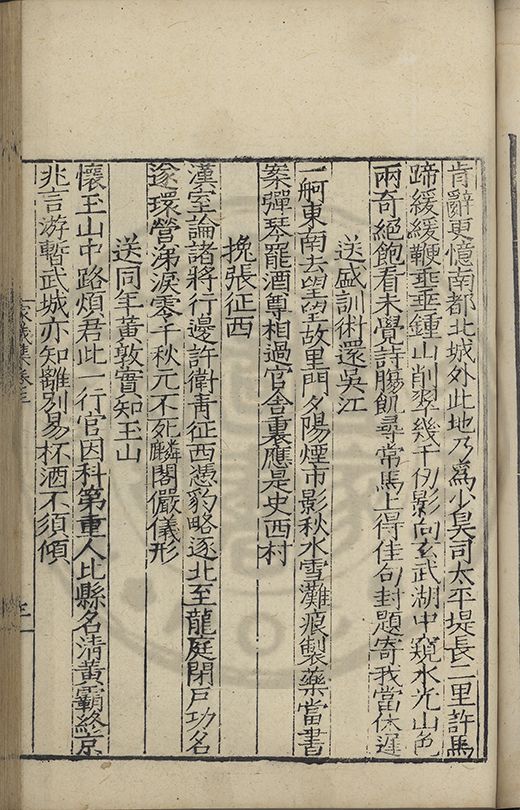 肯辭更憶南都北城外此地乃為少昊司太平堤長二里許馬
蹄緩緩鞭垂垂鍾山削翠幾千仞影向玄武湖中窺水光山色
兩奇絕飽看未覺詩腸飢尋常馬上得佳句封題寄我當休遲
送盛訓術還吳江
一舸東南去望望故里門夕陽煙市影秋水雪灘痕製藥當書
案彈琴罷酒尊相過官舍裏應是史西村
挽張征西
漢室論諸將行邊許衛青征西憑豹略逐北至龍庭閉戶功名
遂環營涕淚零千秋元不死麟閣儼儀形
送同年黃敦實知玉山
懷玉山中路煩君此一行官因科第重人比縣名清黃霸終京
兆言游暫武城亦知離別易杯酒不須傾
家藏集卷三